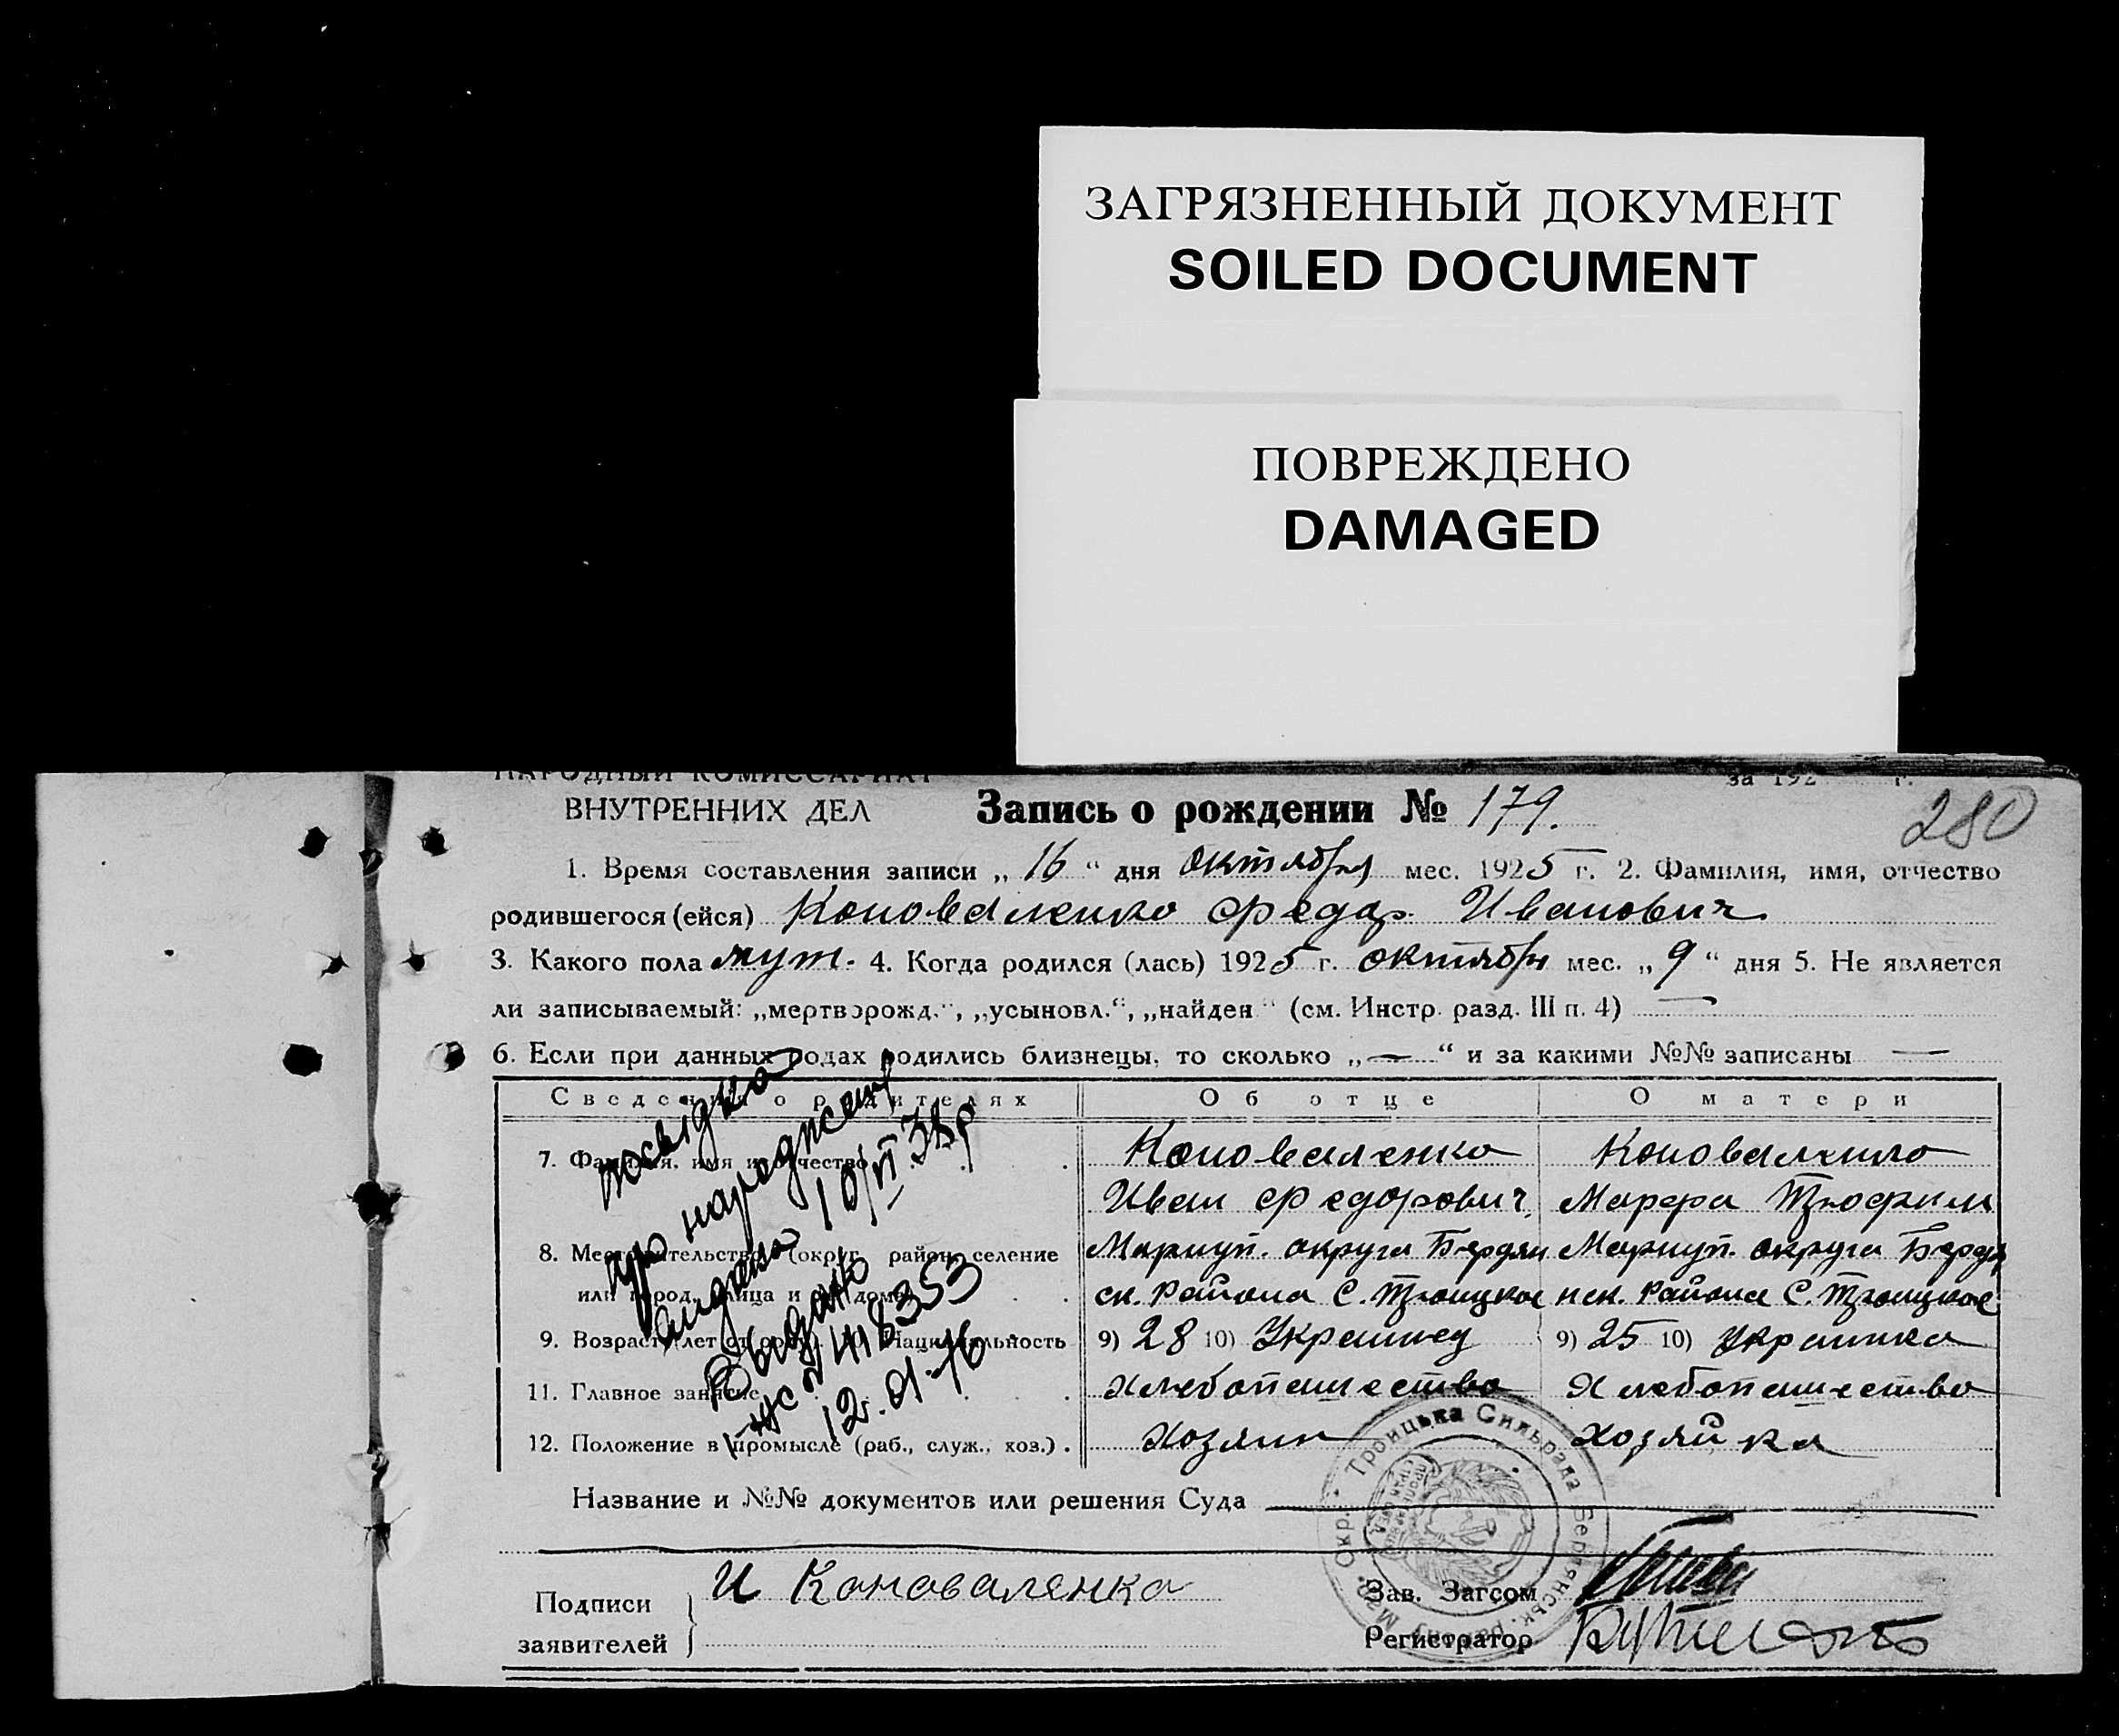 ЗАГРЯЗНЕННЫЙ ДОКУМЕНТ
SOILED DOCUMENT
ПОВРЕЖДЕНО
DAMAGED
НАРОДНЫЙ КОМИССАРИАТ за 192 г.
ВНУТРЕННИХ ДЕЛ Запись о рождении № 179. 280
1. Время составления записи „ 16 “ дня октября мес. 1925 г. 2. Фамилия, имя, отчество
родившегося (ейся) Коноваленко Федор Иванович
3. Какого пола муж. 4. Когда родился (лась) 1925 г. октября мес. „ 9 “ дня 5. Не является
ли записываемый: „мертворожд.“, „усыновл.“, „найден“ (см. Инстр. разд. III п. 4) —
6. Если при данных родах родились близнецы, то сколько „ — “ и за какими №№ записаны —
Сведения о родителях Об отце О матери
7. Фамилия, имя и отчество Коноваленко Коноваленко
Иван Федорович, Марфа Трофим
8. Место жительство (округ, район, селение Мариуп. округа Бердян Мариуп. округа Бердя
или город, улица и № дома) ск. Района С. Троицкое нск. Района С. Троицкое
9. Возраст (лет от роду). 10. Национальность 9) 28 10) Украинец 9) 25 10) Украинка
11. Главное занятие Хлебопашество Хлебопашество
12. Положение в промысле (раб., служ., хоз.) . Хозяин Хозяйка
про народжен
видана 10/VI 38р
Выдано
№ 418353
12.01.76
Название и №№ документов или решения Суда
Троицька Сильрада Берянськ.
Подписи
заявителей
И Коноваленко
Зав. Загсом
Регистратор